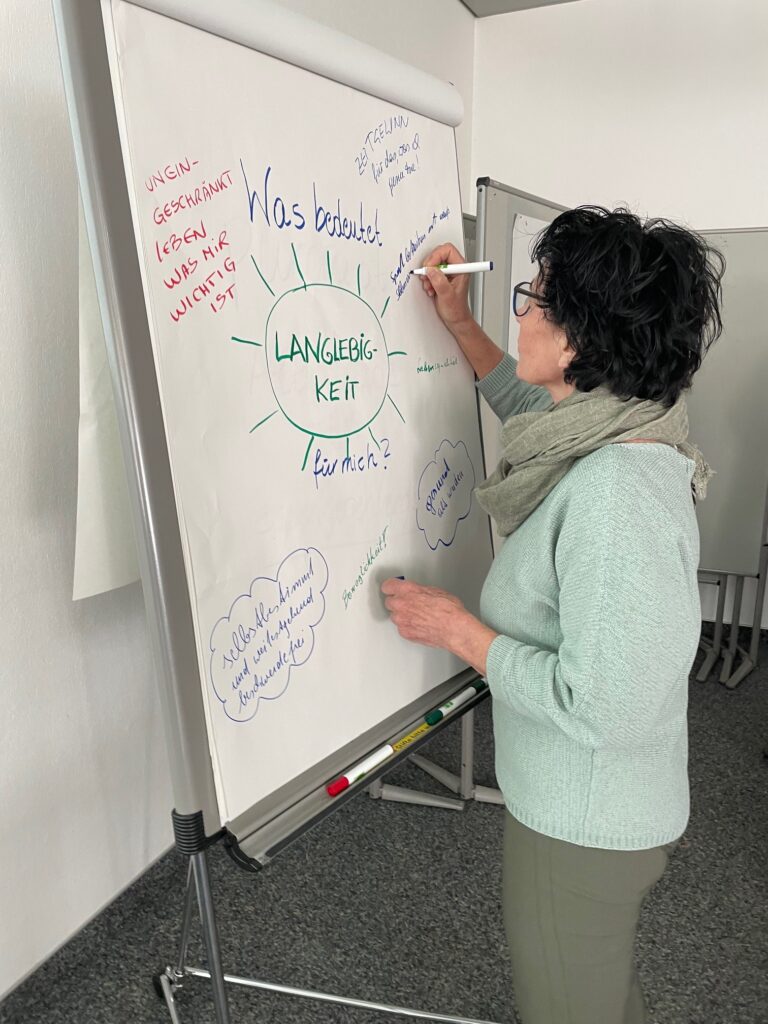 Was bedeutet
LANGLEBIG-
KEIT
für mich?
UNEIN-
GESCHRÄNKT
LEBEN
WAS MIR
WICHTIG
IST
ZEITGEWINN
für das, was
Spaß
mit
gesund
alt werden
Beweglichkeit!
selbstbestimmt
und weitestgehend
beschwerdefrei